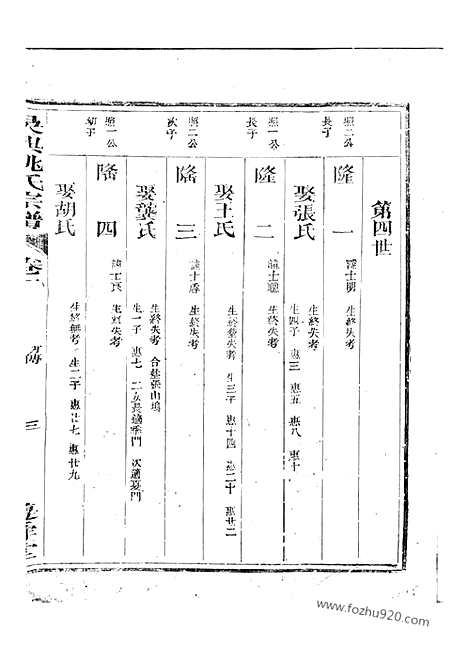 第四世
照二公
長子
隆一
諱士明 生終失考
娶張氏
生終失考
生四子 惠三 惠五 惠八 惠十
照一公
長子
隆二
諱士聰 生終失考
娶王氏
生終葬失考 生三子 惠十四 惠二十 惠廿二
照二公
次子
隆三
諱士 生終失考
娶龔氏
生終失考 合葬張山塢
生一子 惠七 二女長適季門 次適姜門
照一公
幼子
隆四
諱士良 生終失考
娶胡氏
生終無考 生二子 惠廿七 惠廿九
吳興姚氏宗譜
卷二
三
www.fozhu920.com